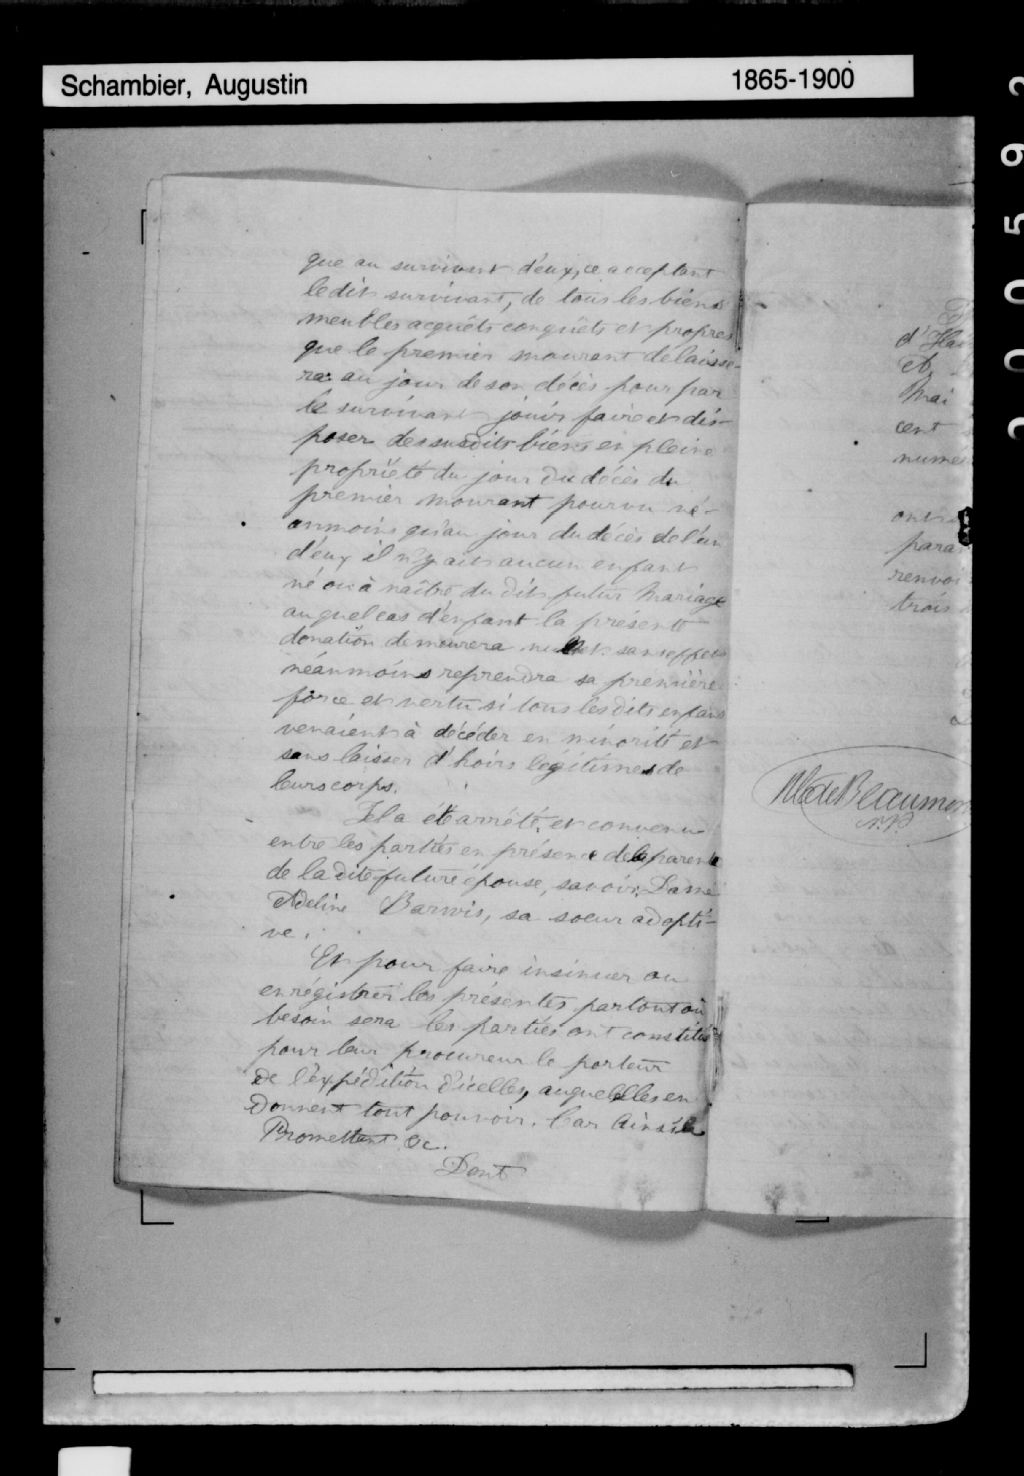 Schambier, Augustin 1865-1900
que au survivant d'eux, ce acceptant
le dit survivant, de tous les biens
meubles acquêts conquêts et propres
que le premier mourant delaisse-
ra au jour de son décès pour par
le survivant jouir faire et dis-
poser des susdits biens en pleine
propriété du jour du décès du
premier mourant pourvu né-
anmoins qu'au jour du décès de l'un
d'eux il n'y ait aucun enfant
né ou à naître du dit futur Mariage
auquel cas d'enfant la présente
donation demeurera nulle et sans effet
néanmoins reprendra sa première
force et vertu si tous les dits enfans
venaient à décéder en minorité et
sans laisser d'hoirs légitimes de
leurs corps.
Tel a été arrêté, et convenu
entre les parties en présence de la parente
de la dite future épouse, savoir: Dame
Adeline Barwis, sa soeur adopti-
ve.
Et pour faire insinuer ou
enrégistrer les présentes partout où
besoin sera les parties ont constitué
pour leur procureur le porteur
de l'expédition d'icelles, auquel elles en
donnent tout pouvoir. Car Ainsi &a
Promettant &c.
Dont
d'Hai
et
Mai
cent
numé
ont
para
renvoi
trois
deBeaumon
N.P.
200592